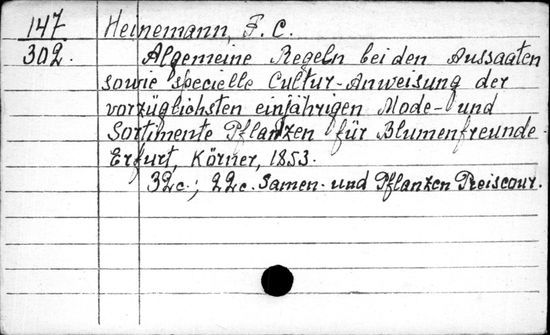 147 Heinemann, F. C.
302. Algemeine Regeln bei den Aussaaten
sowie specielle Cultur-Anweisung der
vorzüglichsten einjährigen Mode- und
Sortimente Pflanzen für Blumenfreunde.
Erfurt, Körner, 1853.
32c.; 22c. Samen- und Pflanzen Preiscour.